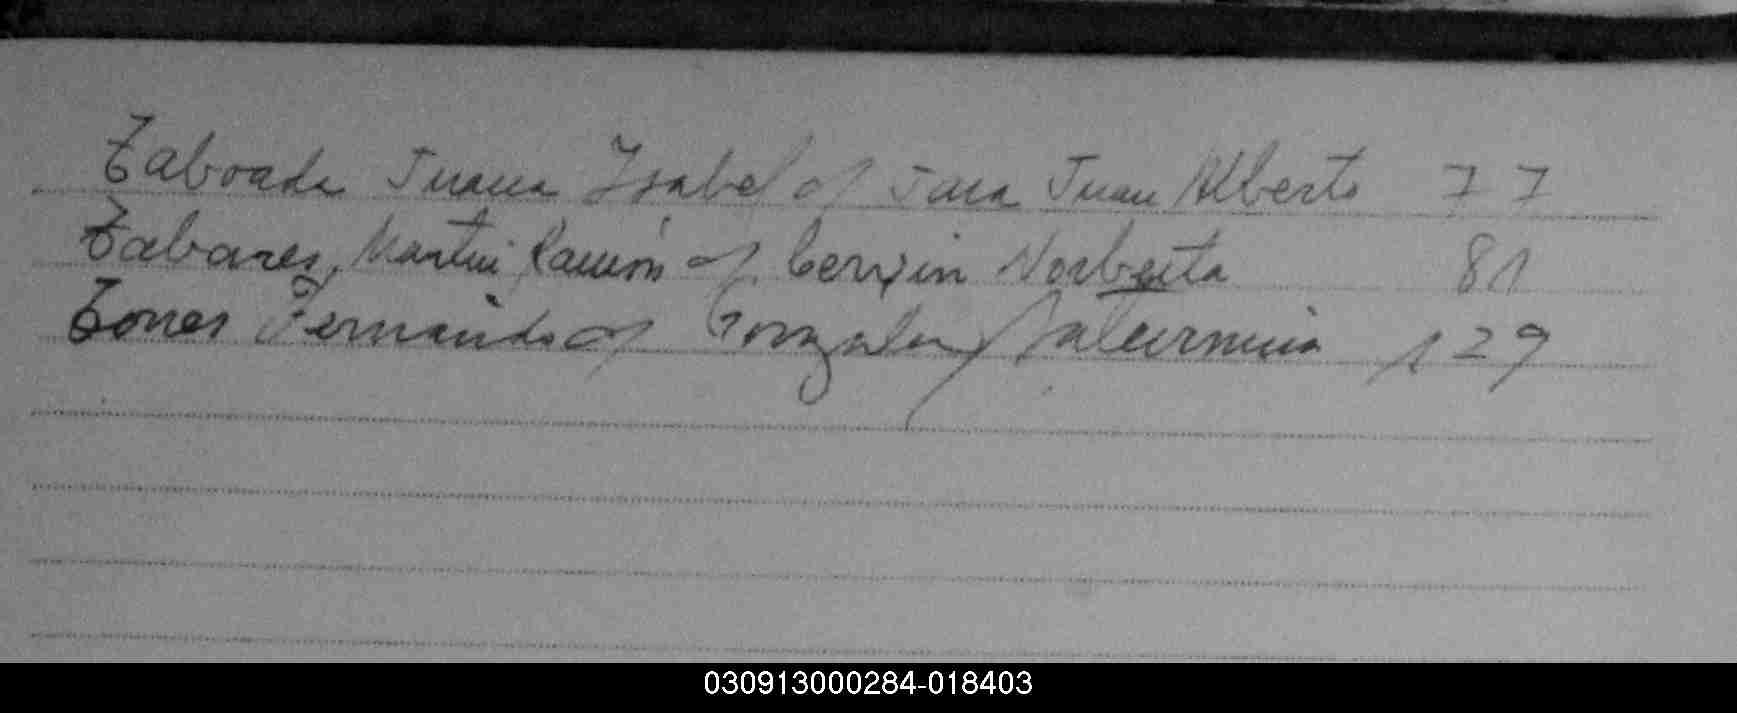 Taboada Juana Ysabel c/ Jara Juan Alberto 77
Tabares, Martin Ramón c/ Norberta 81
Torres Fernando c/ Gonzalez Saturnina 129
030913000284-018403